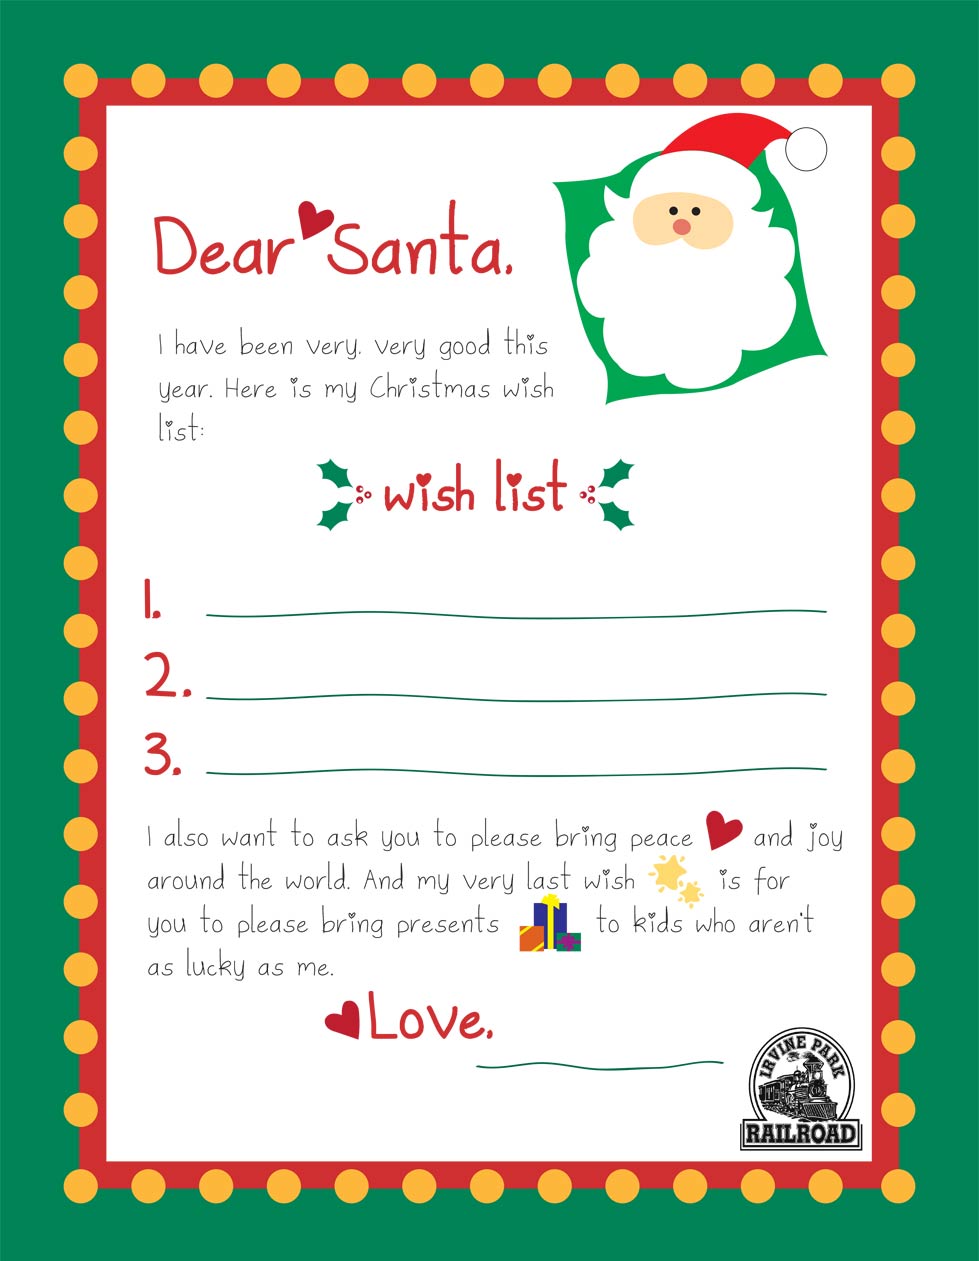 Dear Santa,
I have been very, very good this
year. Here is my Christmas wish
list:
wish list
1.
2.
3.
I also want to ask you to please bring peace and joy
around the world. And my very last wish is for
you to please bring presents to kids who aren't
as lucky as me.
Love,
IRVINE PARK
RAILROAD